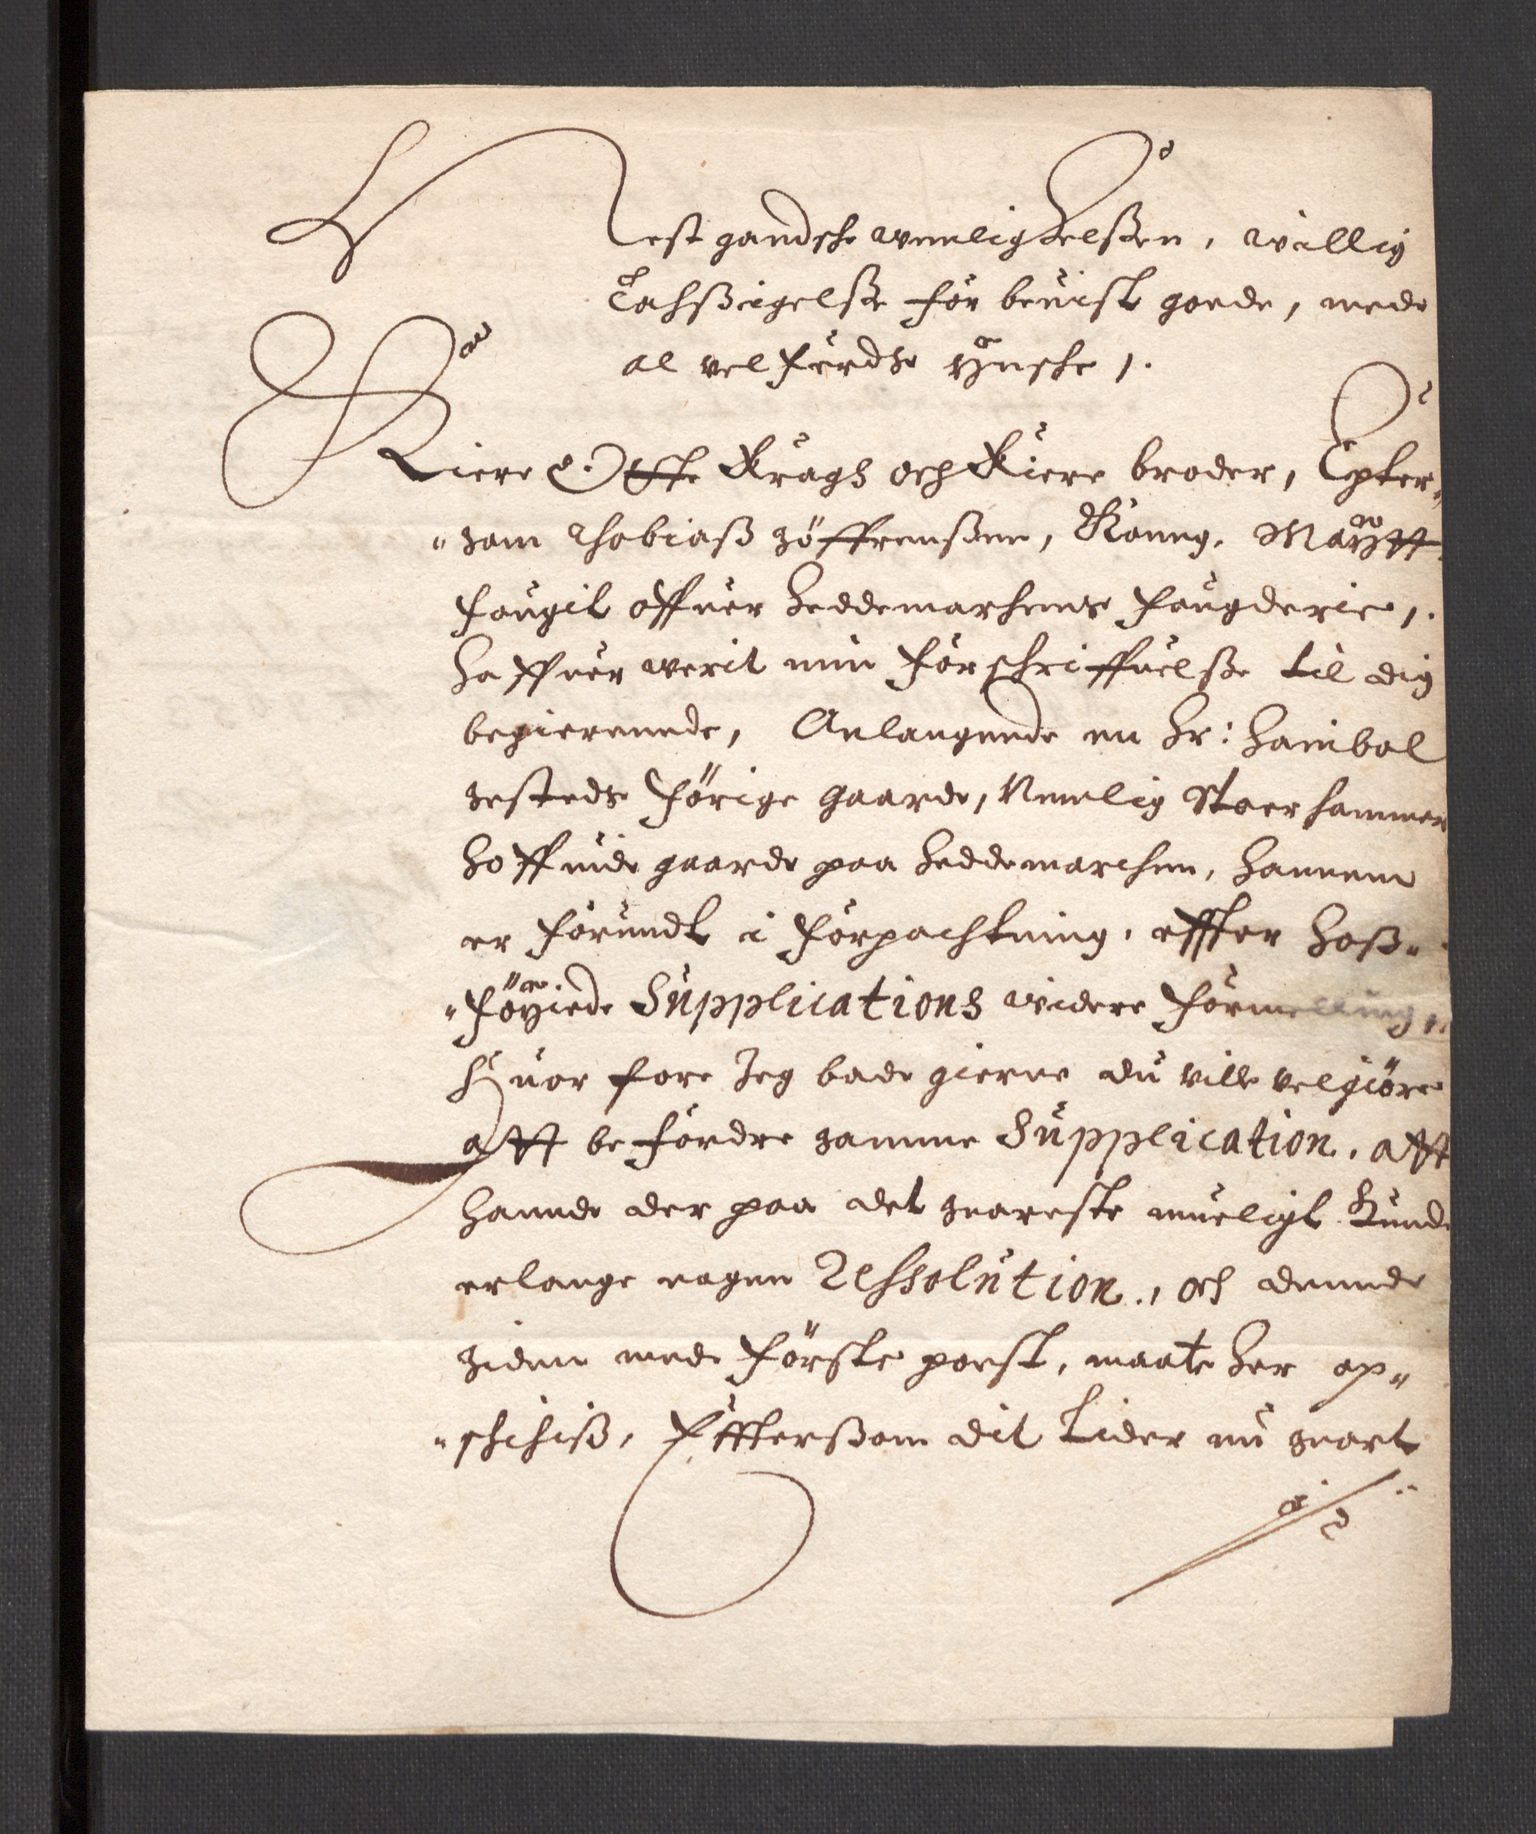 Nest gandsche wenligheelßen, willig
Tachsigelße för beuist goede, mede
al velferdz ÿnsche,.
Kiere Otte Kragh och Kiere broder, Epter„
„som Thobiaß Söffrenßen, Konng. Maÿtt
fougit offuer Heddemarchens fougderie,.
Haffuer werit min forschriffuelße til dig
begierennde, Anlangende en Hr: Hanibal
sesteds förige gaarde, Nemlig Storhammer
Hoffuide gaarde paa Heddemarchen, hannem
er forundt i forpachtning, effter hoß„
„föÿiede Supplications widere formelling,.
Huor fore Jeg bade gierne du ville velgiöre
att befordre samme Supplication, att
hannde der paa det snareste mueligt kunde
erlange nogen Ressolution, och dennde
siden mede förste poest, maate her op„
„schichiß, Efftersom dit tider nu snart